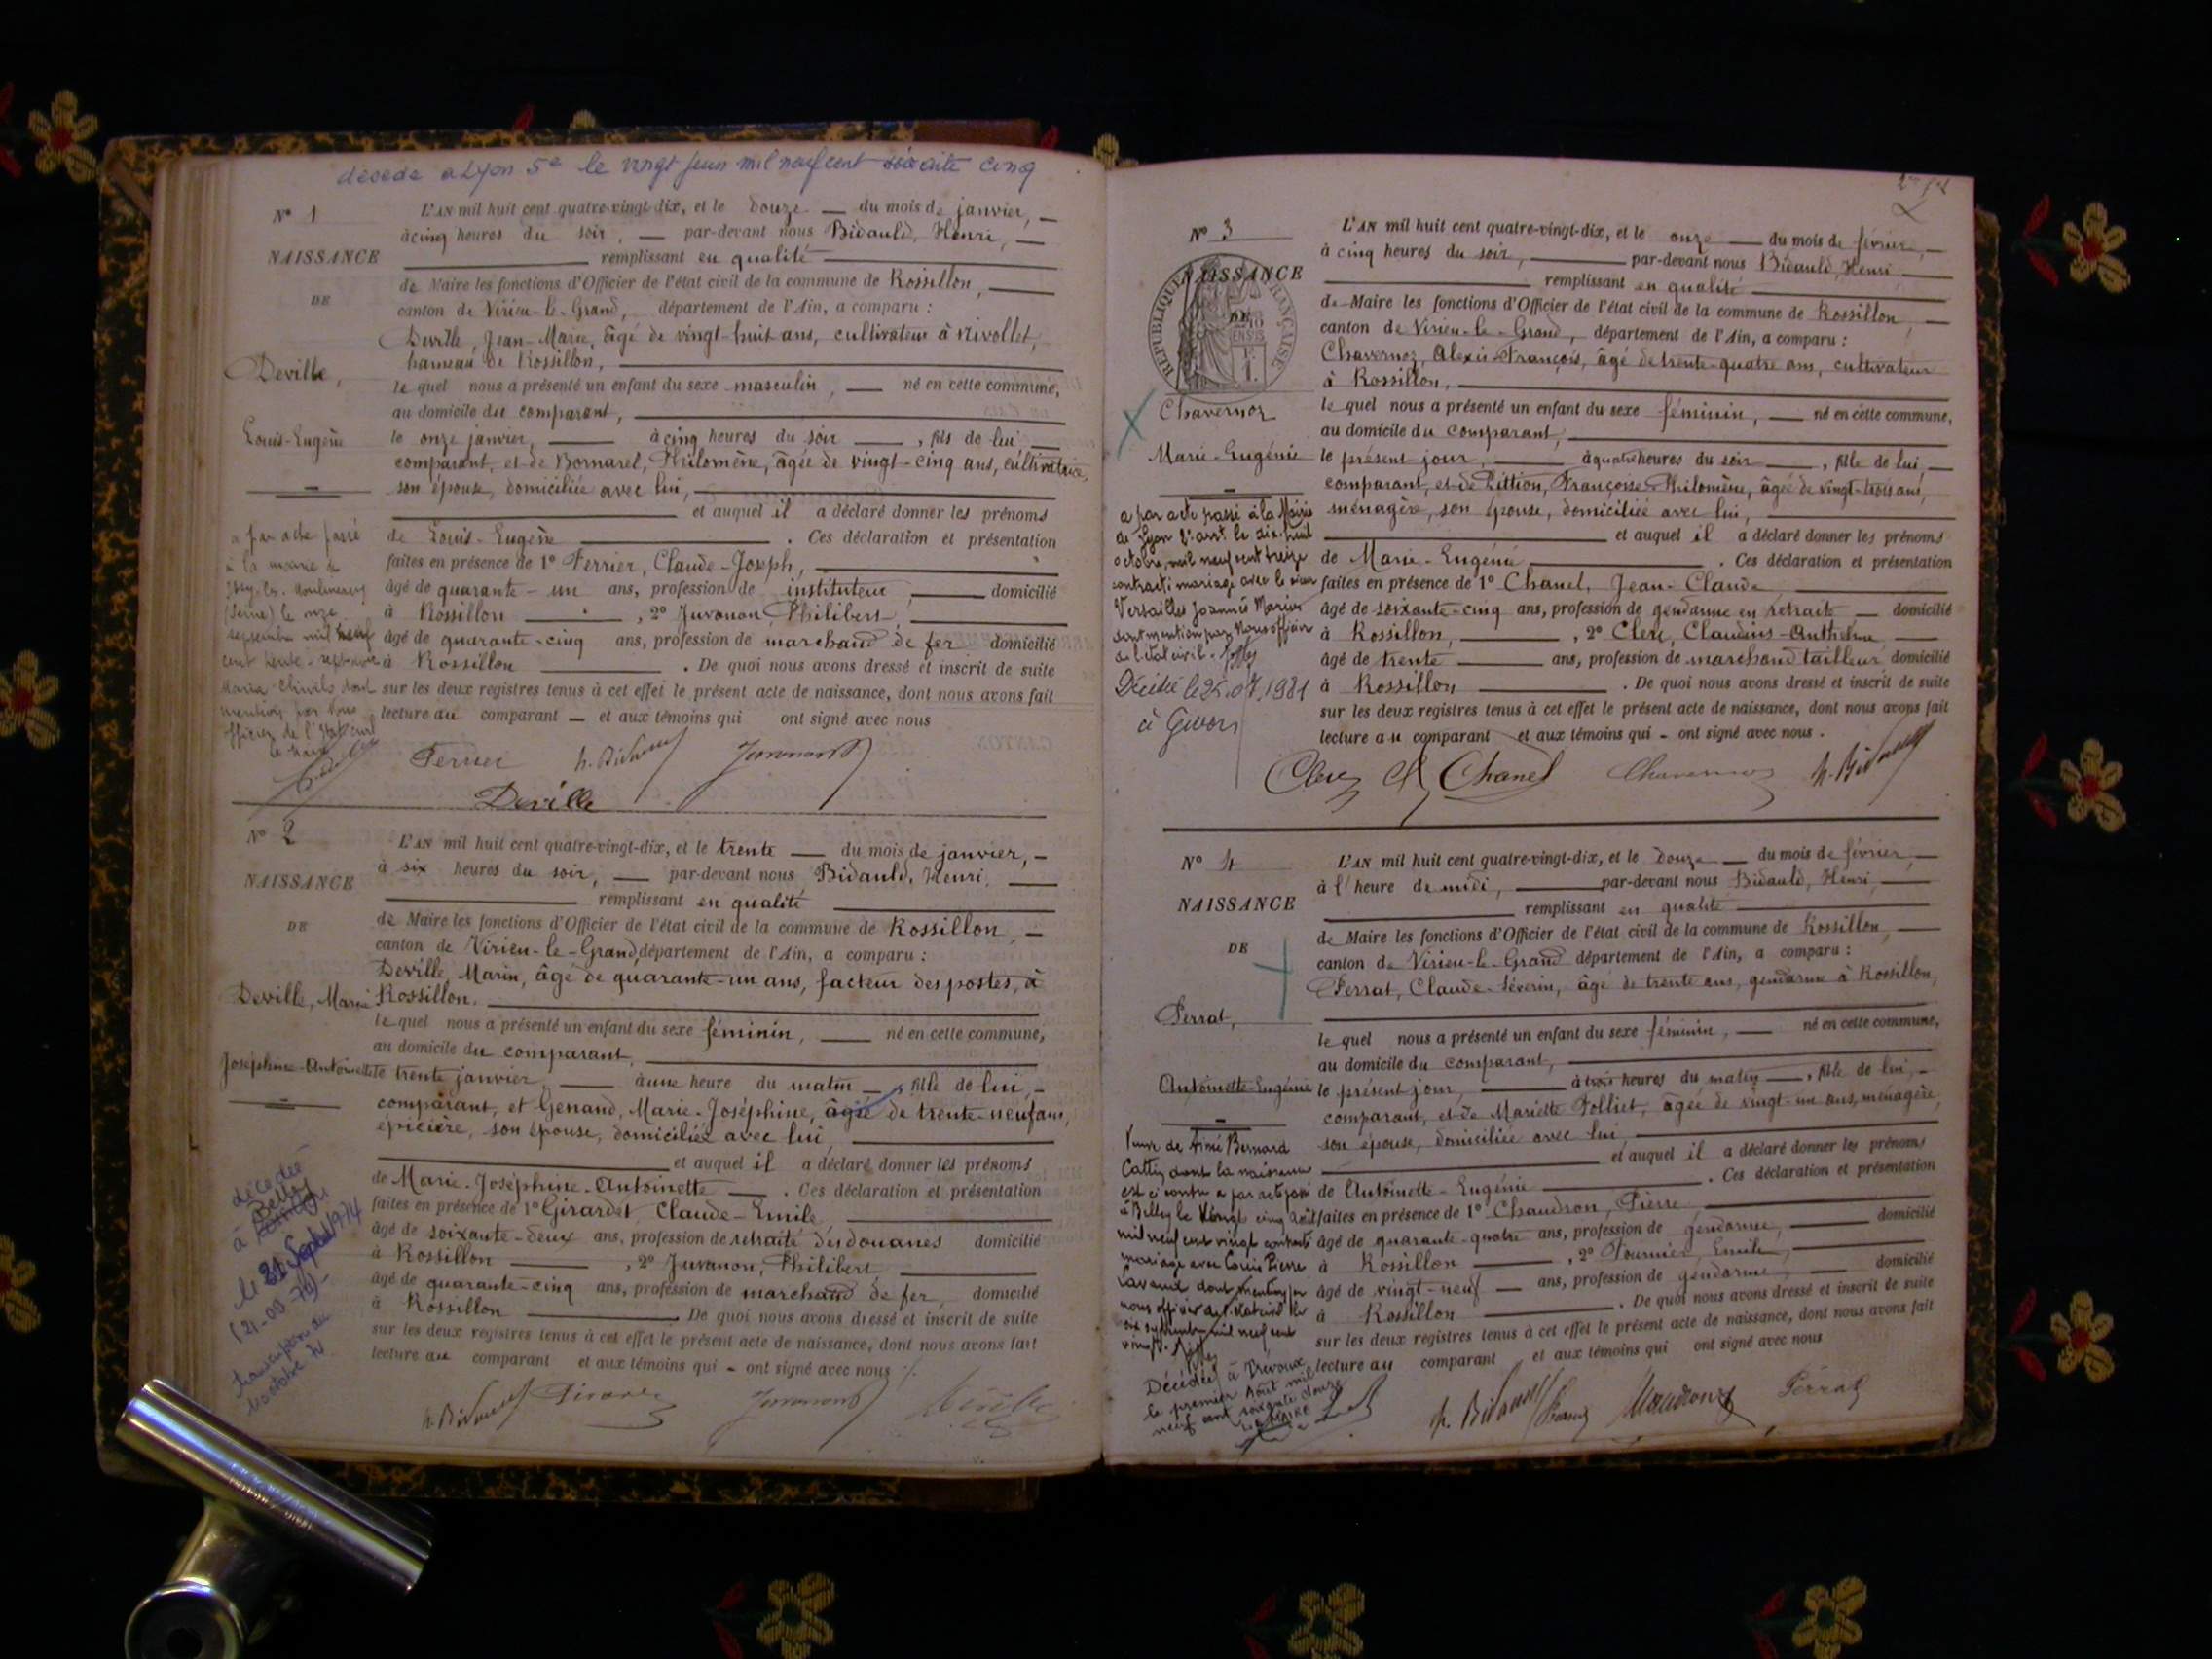 décédé à Lyon 5e le vingt juin mil neuf cent soixante cinq
N° 1
NAISSANCE
DE
Deville,
Louis-Eugène
L'AN mil huit cent quatre-vingt-dix, et le douze du mois de janvier,
à cinq heures du soir, par-devant nous Bidauld, Henri,
remplissant en qualité
de Maire les fonctions d'Officier de l'état civil de la commune de Rossillon,
canton de Virieu-le-Grand, département de l'Ain, a comparu :
Deville, Jean-Marie, âgé de vingt-huit ans, cultivateur à Nivollet,
hameau de Rossillon,
le quel nous a présenté un enfant du sexe masculin, né en cette commune,
au domicile du comparant,
le onze janvier, à cinq heures du soir, fils de lui
comparant, et de Bornarel, Philomène, âgée de vingt-cinq ans, cultivatrice,
son épouse, domiciliée avec lui,
et auquel il a déclaré donner les prénoms
de Louis-Eugène . Ces déclaration et présentation
faites en présence de 1° Ferrier, Claude-Joseph,
âgé de quarante-un ans, profession de instituteur, domicilié
à Rossillon , 2° Juvanon, Philibert,
âgé de quarante-cinq ans, profession de marchand de fer domicilié
à Rossillon . De quoi nous avons dressé et inscrit de suite
sur les deux registres tenus à cet effet le présent acte de naissance, dont nous avons fait
lecture au comparant et aux témoins qui ont signé avec nous
a par acte passé
à la mairie de
Issy-les-Moulineaux
(Seine) le onze
septembre mil neuf
cent trente-
Maria dont
mention par nous
officier de l'état civil
le maire
Ferrier h. Bidauld Juvanon
Deville
N° 2
NAISSANCE
DE
Deville, Marie
Joséphine-Antoinette
L'AN mil huit cent quatre-vingt-dix, et le trente du mois de janvier,
à six heures du soir, par-devant nous Bidauld, Henri,
remplissant en qualité
de Maire les fonctions d'Officier de l'état civil de la commune de Rossillon,
canton de Virieu-le-Grand, département de l'Ain, a comparu :
Deville, Marin, âgé de quarante-un ans, facteur des postes, à
Rossillon,
le quel nous a présenté un enfant du sexe féminin, né en cette commune,
au domicile du comparant,
le trente janvier, à une heure du matin, fille de lui,
comparant, et Genand, Marie-Joséphine, âgée de trente-neuf ans,
épicière, son épouse, domiciliée avec lui,
et auquel il a déclaré donner les prénoms
de Marie-Joséphine-Antoinette . Ces déclaration et présentation
faites en présence de 1° Girardet, Claude-Emile,
âgé de soixante-deux ans, profession de retraité des douanes domicilié
à Rossillon , 2° Juvanon, Philibert
âgé de quarante-cinq ans, profession de marchand de fer, domicilié
à Rossillon . De quoi nous avons dressé et inscrit de suite
sur les deux registres tenus à cet effet le présent acte de naissance, dont nous avons fait
lecture au comparant et aux témoins qui - ont signé avec nous
décédée
à Belley
le 21 Sept 1974
h. Bidauld Juvanon Deville
N° 3
NAISSANCE
DE
RÉPUBLIQUE FRANÇAISE
Chavernoz
Marie-Eugénie
L'AN mil huit cent quatre-vingt-dix, et le onze du mois de février,
à cinq heures du soir, par-devant nous Bidauld, Henri
remplissant en qualité
de Maire les fonctions d'Officier de l'état civil de la commune de Rossillon,
canton de Virieu-le-Grand, département de l'Ain, a comparu :
Chavernoz, Alexis-François, âgé de trente-quatre ans, cultivateur
à Rossillon,
le quel nous a présenté un enfant du sexe féminin, né en cette commune,
au domicile du comparant,
le présent jour, à quatre heures du soir, fille de lui
comparant, et de Pittion, Françoise-Philomène, âgée de vingt-trois ans,
ménagère, son épouse, domiciliée avec lui,
et auquel il a déclaré donner les prénoms
de Marie-Eugénie . Ces déclaration et présentation
faites en présence de 1° Chanel, Jean-Claude
âgé de soixante-cinq ans, profession de gendarme en retraite domicilié
à Rossillon, , 2° Clerc, Claudius-Anthelme
âgé de trente ans, profession de marchand tailleur domicilié
à Rossillon . De quoi nous avons dressé et inscrit de suite
sur les deux registres tenus à cet effet le présent acte de naissance, dont nous avons fait
lecture au comparant et aux témoins qui - ont signé avec nous.
a par acte passé à la Mairie
de Lyon arrt. le dix-huit
octobre, mil neuf cent treize
contracté mariage avec le sieur
Versailles Joannès Marius
dont mention par Nous officier
de l'état civil.
Décédée le 25.07.1981
à Givors
Clerc Chanel Chavernoz h. Bidauld
N° 4
NAISSANCE
DE
Perrat,
Antoinette-Eugénie
L'AN mil huit cent quatre-vingt-dix, et le douze du mois de février,
à l'heure de midi, par-devant nous Bidauld, Henri,
remplissant en qualité
de Maire les fonctions d'Officier de l'état civil de la commune de Rossillon,
canton de Virieu-le-Grand département de l'Ain, a comparu :
Perrat, Claude-Séverin, âgé de trente ans, gendarme à Rossillon,
le quel nous a présenté un enfant du sexe féminin, né en cette commune,
au domicile du comparant,
le présent jour, à trois heures du matin, fille de lui,
comparant, et de Mariette Folliet, âgée de vingt-un ans, ménagère,
son épouse, domiciliée avec lui,
et auquel il a déclaré donner les prénoms
de Antoinette-Eugénie . Ces déclaration et présentation
faites en présence de 1° Chaudron, Pierre
âgé de quarante-quatre ans, profession de gendarme, domicilié
à Rossillon , 2° Fournier, Emile,
âgé de vingt-neuf ans, profession de gendarme, domicilié
à Rossillon . De quoi nous avons dressé et inscrit de suite
sur les deux registres tenus à cet effet le présent acte de naissance, dont nous avons fait
lecture au comparant et aux témoins qui ont signé avec nous
Veuve de Aimé Bernard
Cattin dont la naissance
est ci contre a par acte passé
à Belley le vingt cinq août
mil neuf cent vingt contracté
mariage avec Louis Pierre
Lavaud dont mention par
nous officier de l'état civil le
six septembre mil neuf cent
vingt.
Décédée à Trévoux
le premier Août mil
neuf cent soixante douze
Le Maire
h. Bidauld Chaudron Perrat